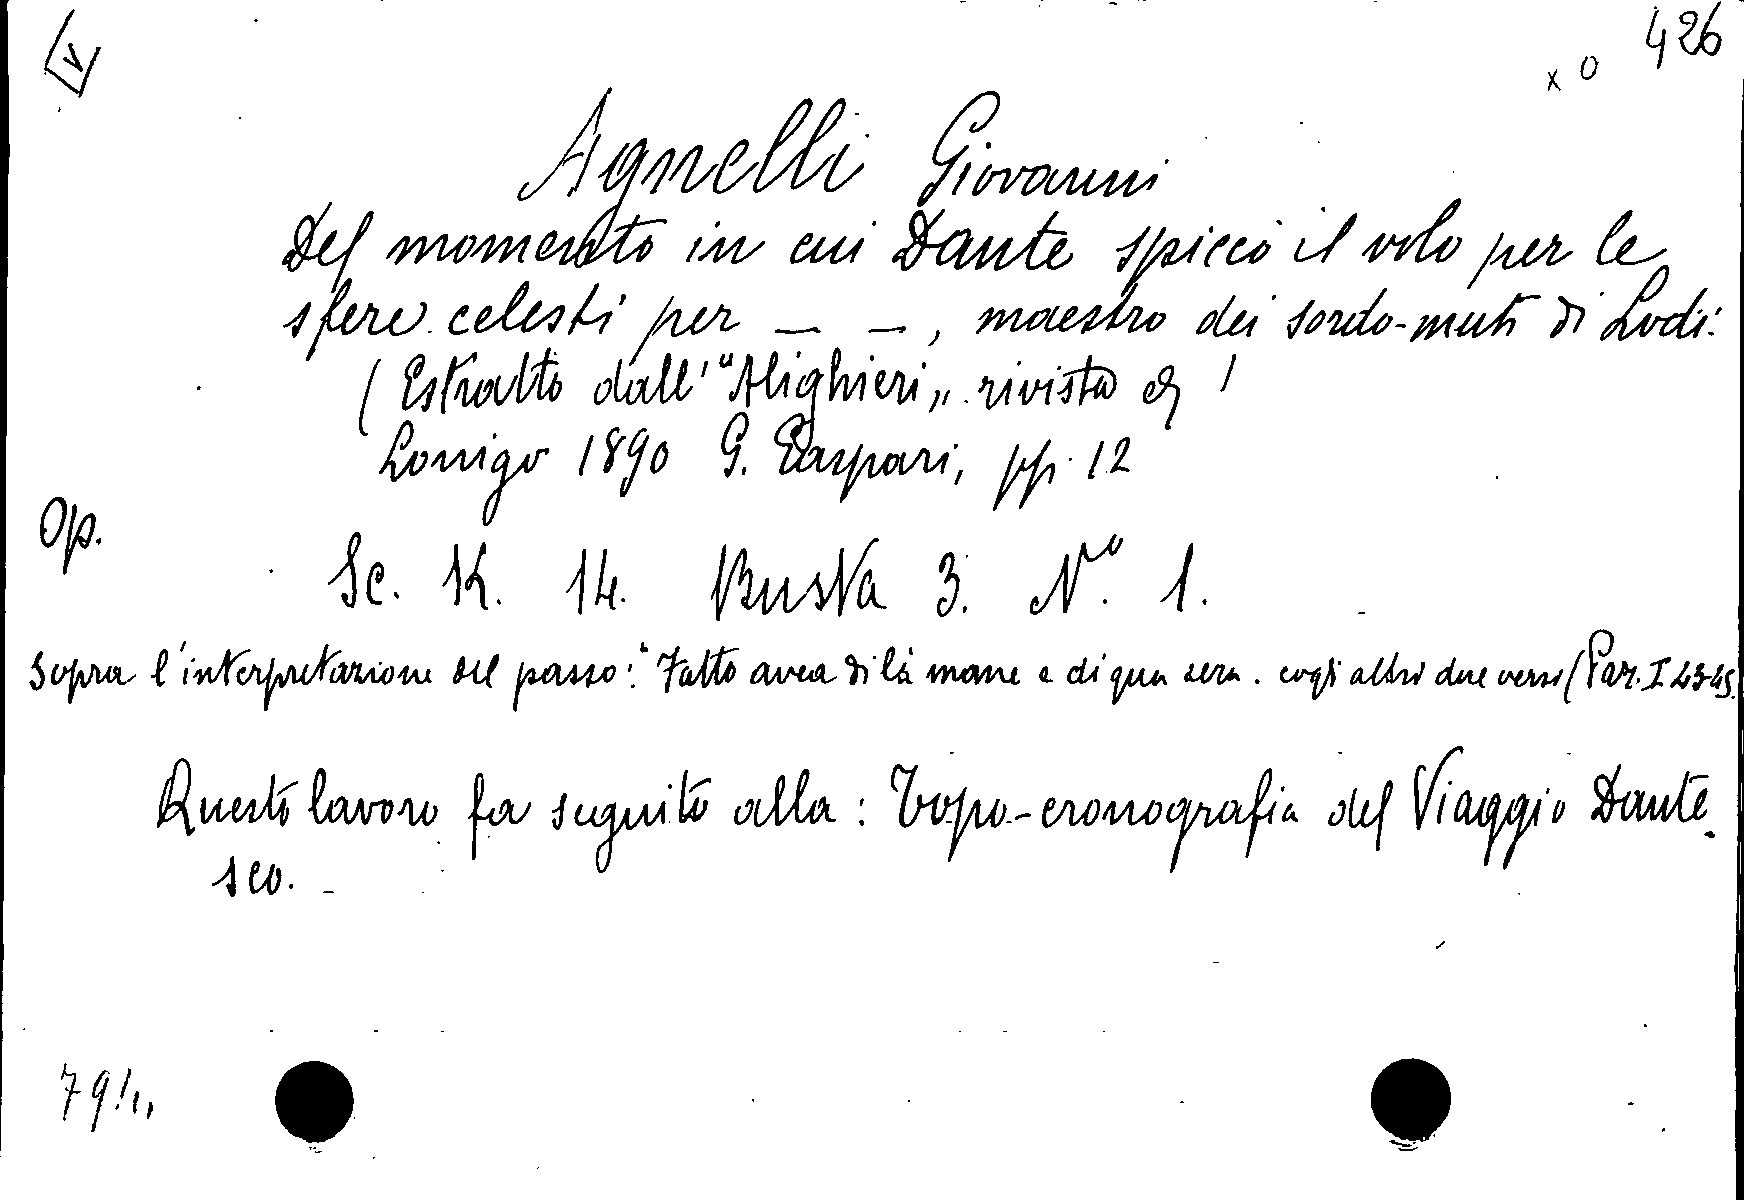 V
426
x o
Agnelli Giovanni
Del momento in cui Dante spiccò il volo per le
sfere celesti per — —, maestro dei sordo-muti di Lodi:
(Estratto dall' "Alighieri„ rivista &)
Lonigo 1890 G. Gaspari, pp. 12
Op.
Sc. K. 14. Busta 3. No. 1.
Sopra l'interpretazione del passo: "Fatto avea di là mane e di qua sera. cogli altri due versi (Par. I 43-45.
Questo lavoro fa seguito alla: Topo-cronografia del Viaggio Dante-
sco.